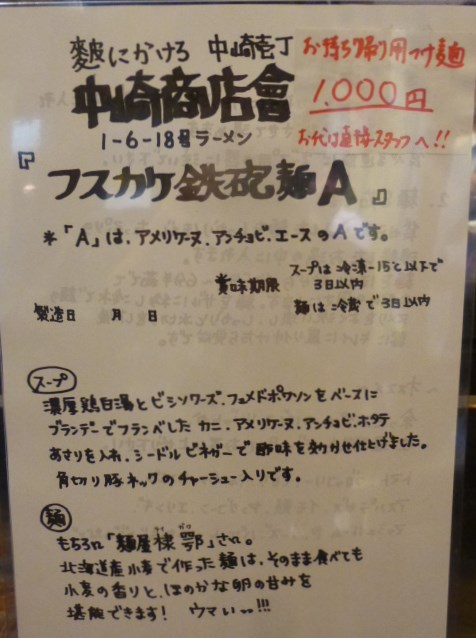 麬にかけろ 中崎壱丁
中崎商店會
1-6-18号ラーメン
『フスカケ鉄砲麺A』
お持ち帰り用つけ麺
1,000円
お代は直接スタッフへ!!
*「A」は、アメリケーヌ、アンチョビ、エースのAです。
賞味期限
スープは冷凍-15℃以下で
3日以内
麺は冷蔵で3日以内
製造日 月 日
スープ
濃厚鶏白湯とビシソワーズ、フュメドポワソンをベースに
ブランデーでフランベした カニ、アメリケーヌ、アンチョビ、ホタテ
あさりを入れ、シードルビネガーで酸味を効かせ仕上げました。
角切り豚ネックのチャーシュー入りです。
麺
もちろん「麺屋棣鄂」さん。
北海道産小麦で作った麺は、そのまま食べても
小麦の香りと、ほのかな卵の甘みを
堪能できます! ウマいっ!!!